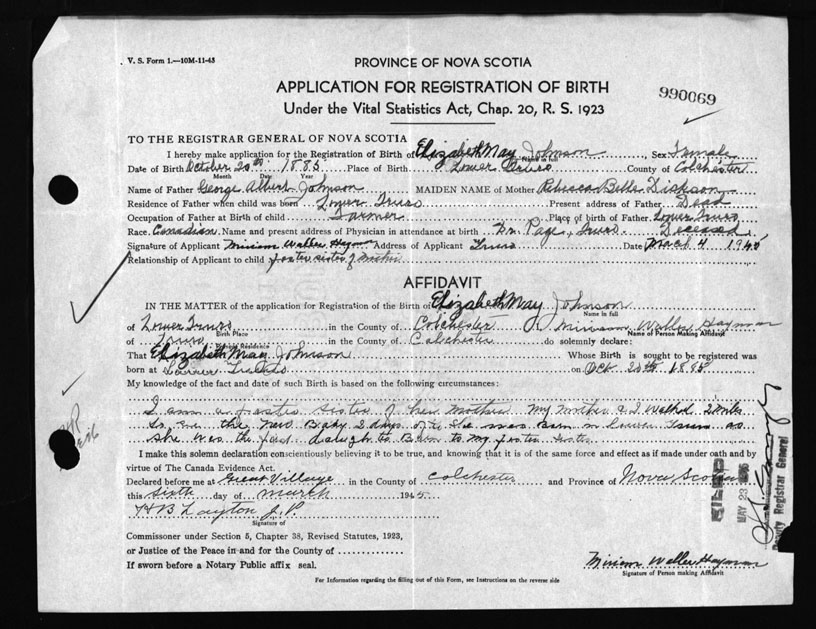 V. S. Form 1.—10M-11-43
PROVINCE OF NOVA SCOTIA
APPLICATION FOR REGISTRATION OF BIRTH
990069
Under the Vital Statistics Act, Chap. 20, R. S. 1923
TO THE REGISTRAR GENERAL OF NOVA SCOTIA
I hereby make application for the Registration of Birth of Elizabeth May Johnson, Sex Female
Name in full
Date of Birth October 20th 1885 Place of Birth Lower Truro County of Colchester
Month Date Year
Name of Father George Albert Johnson MAIDEN NAME of Mother Rebecca Belle Dickson
Residence of Father when child was born Lower Truro Present address of Father Dead
Occupation of Father at Birth of child Farmer Place of birth of Father Lower Truro
Race. Canadian. Name and present address of Physician in attendance at birth Dr. Page, Truro. Deceased
Signature of Applicant Miriam Waller Hayman Address of Applicant Truro Date March 4 1945
Relationship of Applicant to child foster sister of mother
AFFIDAVIT
IN THE MATTER of the application for Registration of the Birth of Elizabeth May Johnson
Name in full
of Lower Truro in the County of Colchester I, Miriam Waller Hayman
Birth Place Name of Person Making Affidavit
of Truro in the County of Colchester do solemnly declare:
Present Residence
That Elizabeth May Johnson Whose Birth is sought to be registered was
born at Lower Truro on Oct 20th 1885
My knowledge of the fact and date of such Birth is based on the following circumstances:
I am a foster sister of her mother my mother & I Walked 2 miles
to see the New Baby 2 days old She was born in Lower Truro as
she was the first daughter Born to my foster sister
I make this solemn declaration conscientiously believing it to be true, and knowing that it is of the same force and effect as if made under oath and by
virtue of The Canada Evidence Act.
Declared before me at Great Village in the County of Colchester and Province of Nova Scotia
this sixth day of march 1945
H B Layton J.P.
Signature of
Commissioner under Section 5, Chapter 38, Revised Statutes, 1923,
or Justice of the Peace in and for the County of
If sworn before a Notary Public affix seal.
Miriam Waller Hayman
Signature of Person making Affidavit
For Information regarding the filling out of this Form, see Instructions on the reverse side
FILED
MAY 23
Deputy Registrar General